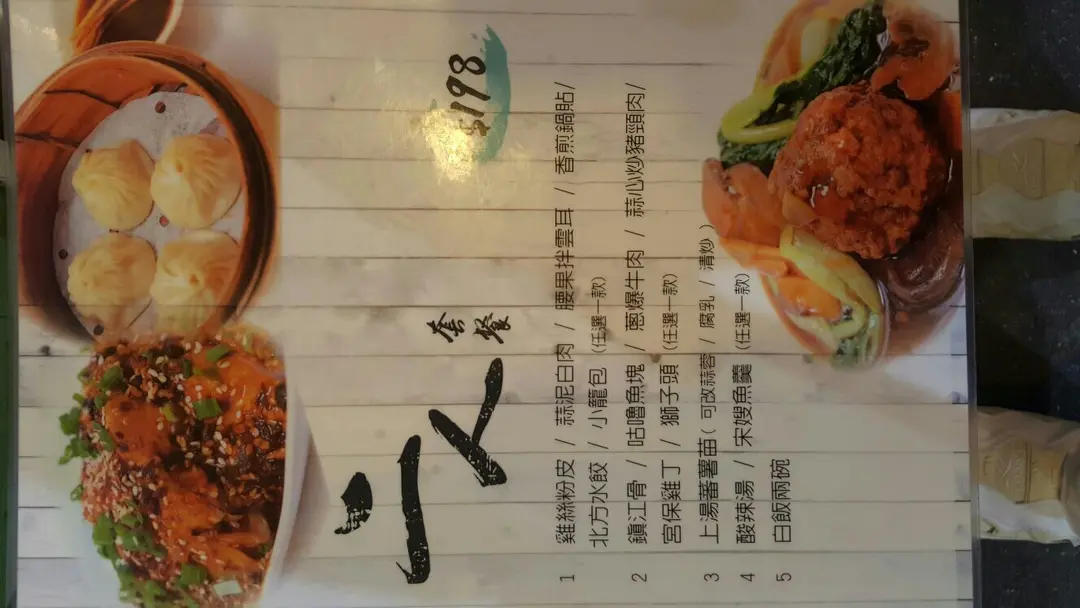 二人
套餐
$198
1 雞絲粉皮 / 蒜泥白肉 / 腰果拌雲耳 / 香煎鍋貼/
北方水餃 / 小籠包 (任選一款)
2 鎮江骨 / 咕嚕魚塊 / 蔥爆牛肉 / 蒜心炒豬頸肉/
宮保雞丁 / 獅子頭 (任選一款)
3 上湯蕃薯苗( 可改蒜蓉 / 腐乳 / 清炒 )
4 酸辣湯 / 宋嫂魚羹 (任選一款)
5 白飯兩碗